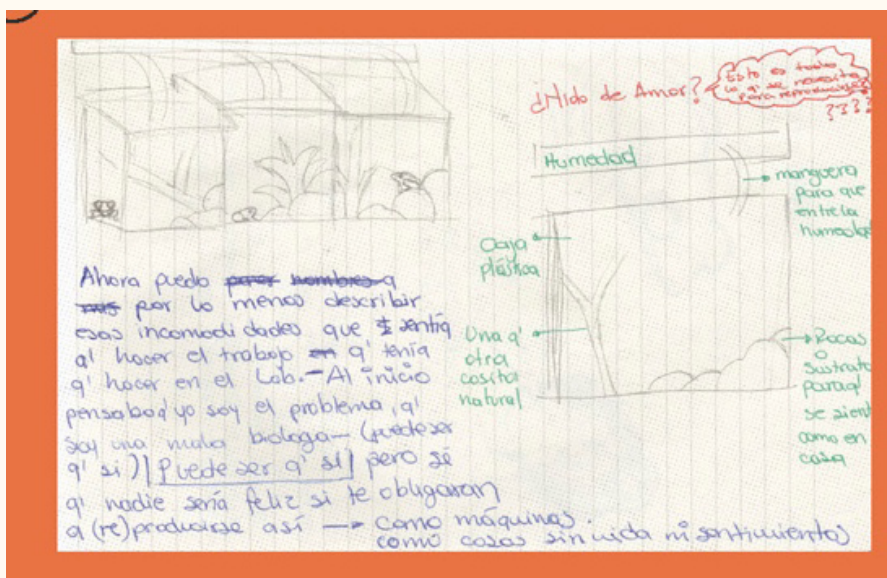 ¿Nido de Amor?
Esto es todo
lo q' se necesita
para reproducirse?
????
Humedad
manguera
para que
entre la
humedad
Caja
plástica
Una q'
otra
cosita
natural
Rocas
o
sustrato
para q'
se sient
como en
casa
Ahora puedo poner nombres a
mis por lo menos describir
esas incomodidades que sentía
al hacer el trabajo q' tenía
q' hacer en el Lab. - Al inicio
pensaba q' yo soy el problema, q'
soy una mala biologa - (puede ser
q' si) | Puede ser q' si | pero sé
q' nadie sería feliz si te obligaran
a (re)producirse así → como máquinas.
como cosas sin vida ni sentimientos